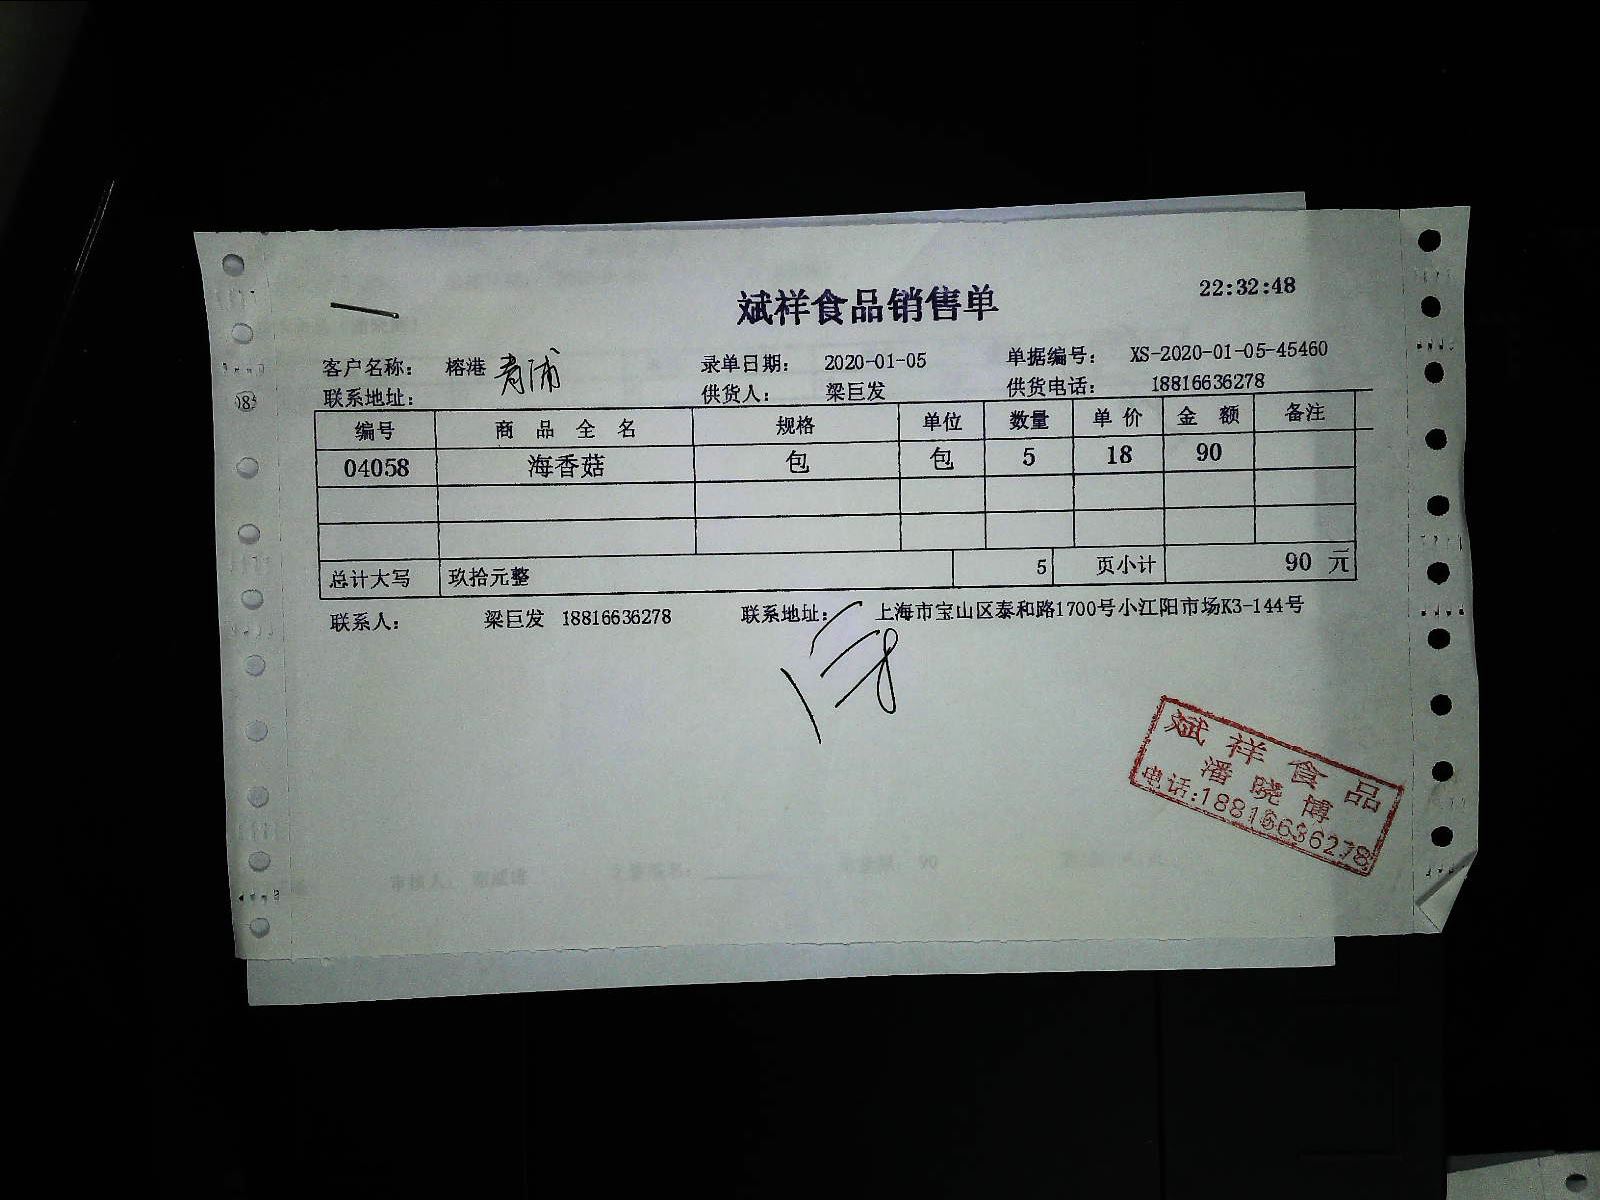 22:32:48
斌祥食品销售单
客户名称： 榕港 青浦 录单日期： 2020-01-05 单据编号： XS-2020-01-05-45460
联系地址： 供货人： 梁巨发 供货电话： 18816636278
编号 商品全名 规格 单位 数量 单价 金额 备注
04058 海香菇 包 包 5 18 90
总计大写 玖拾元整 5 页小计 90 元
联系人： 梁巨发 18816636278 联系地址： 上海市宝山区泰和路1700号小江阳市场K3-144号
斌祥食品
潘晓博
电话:18816636278